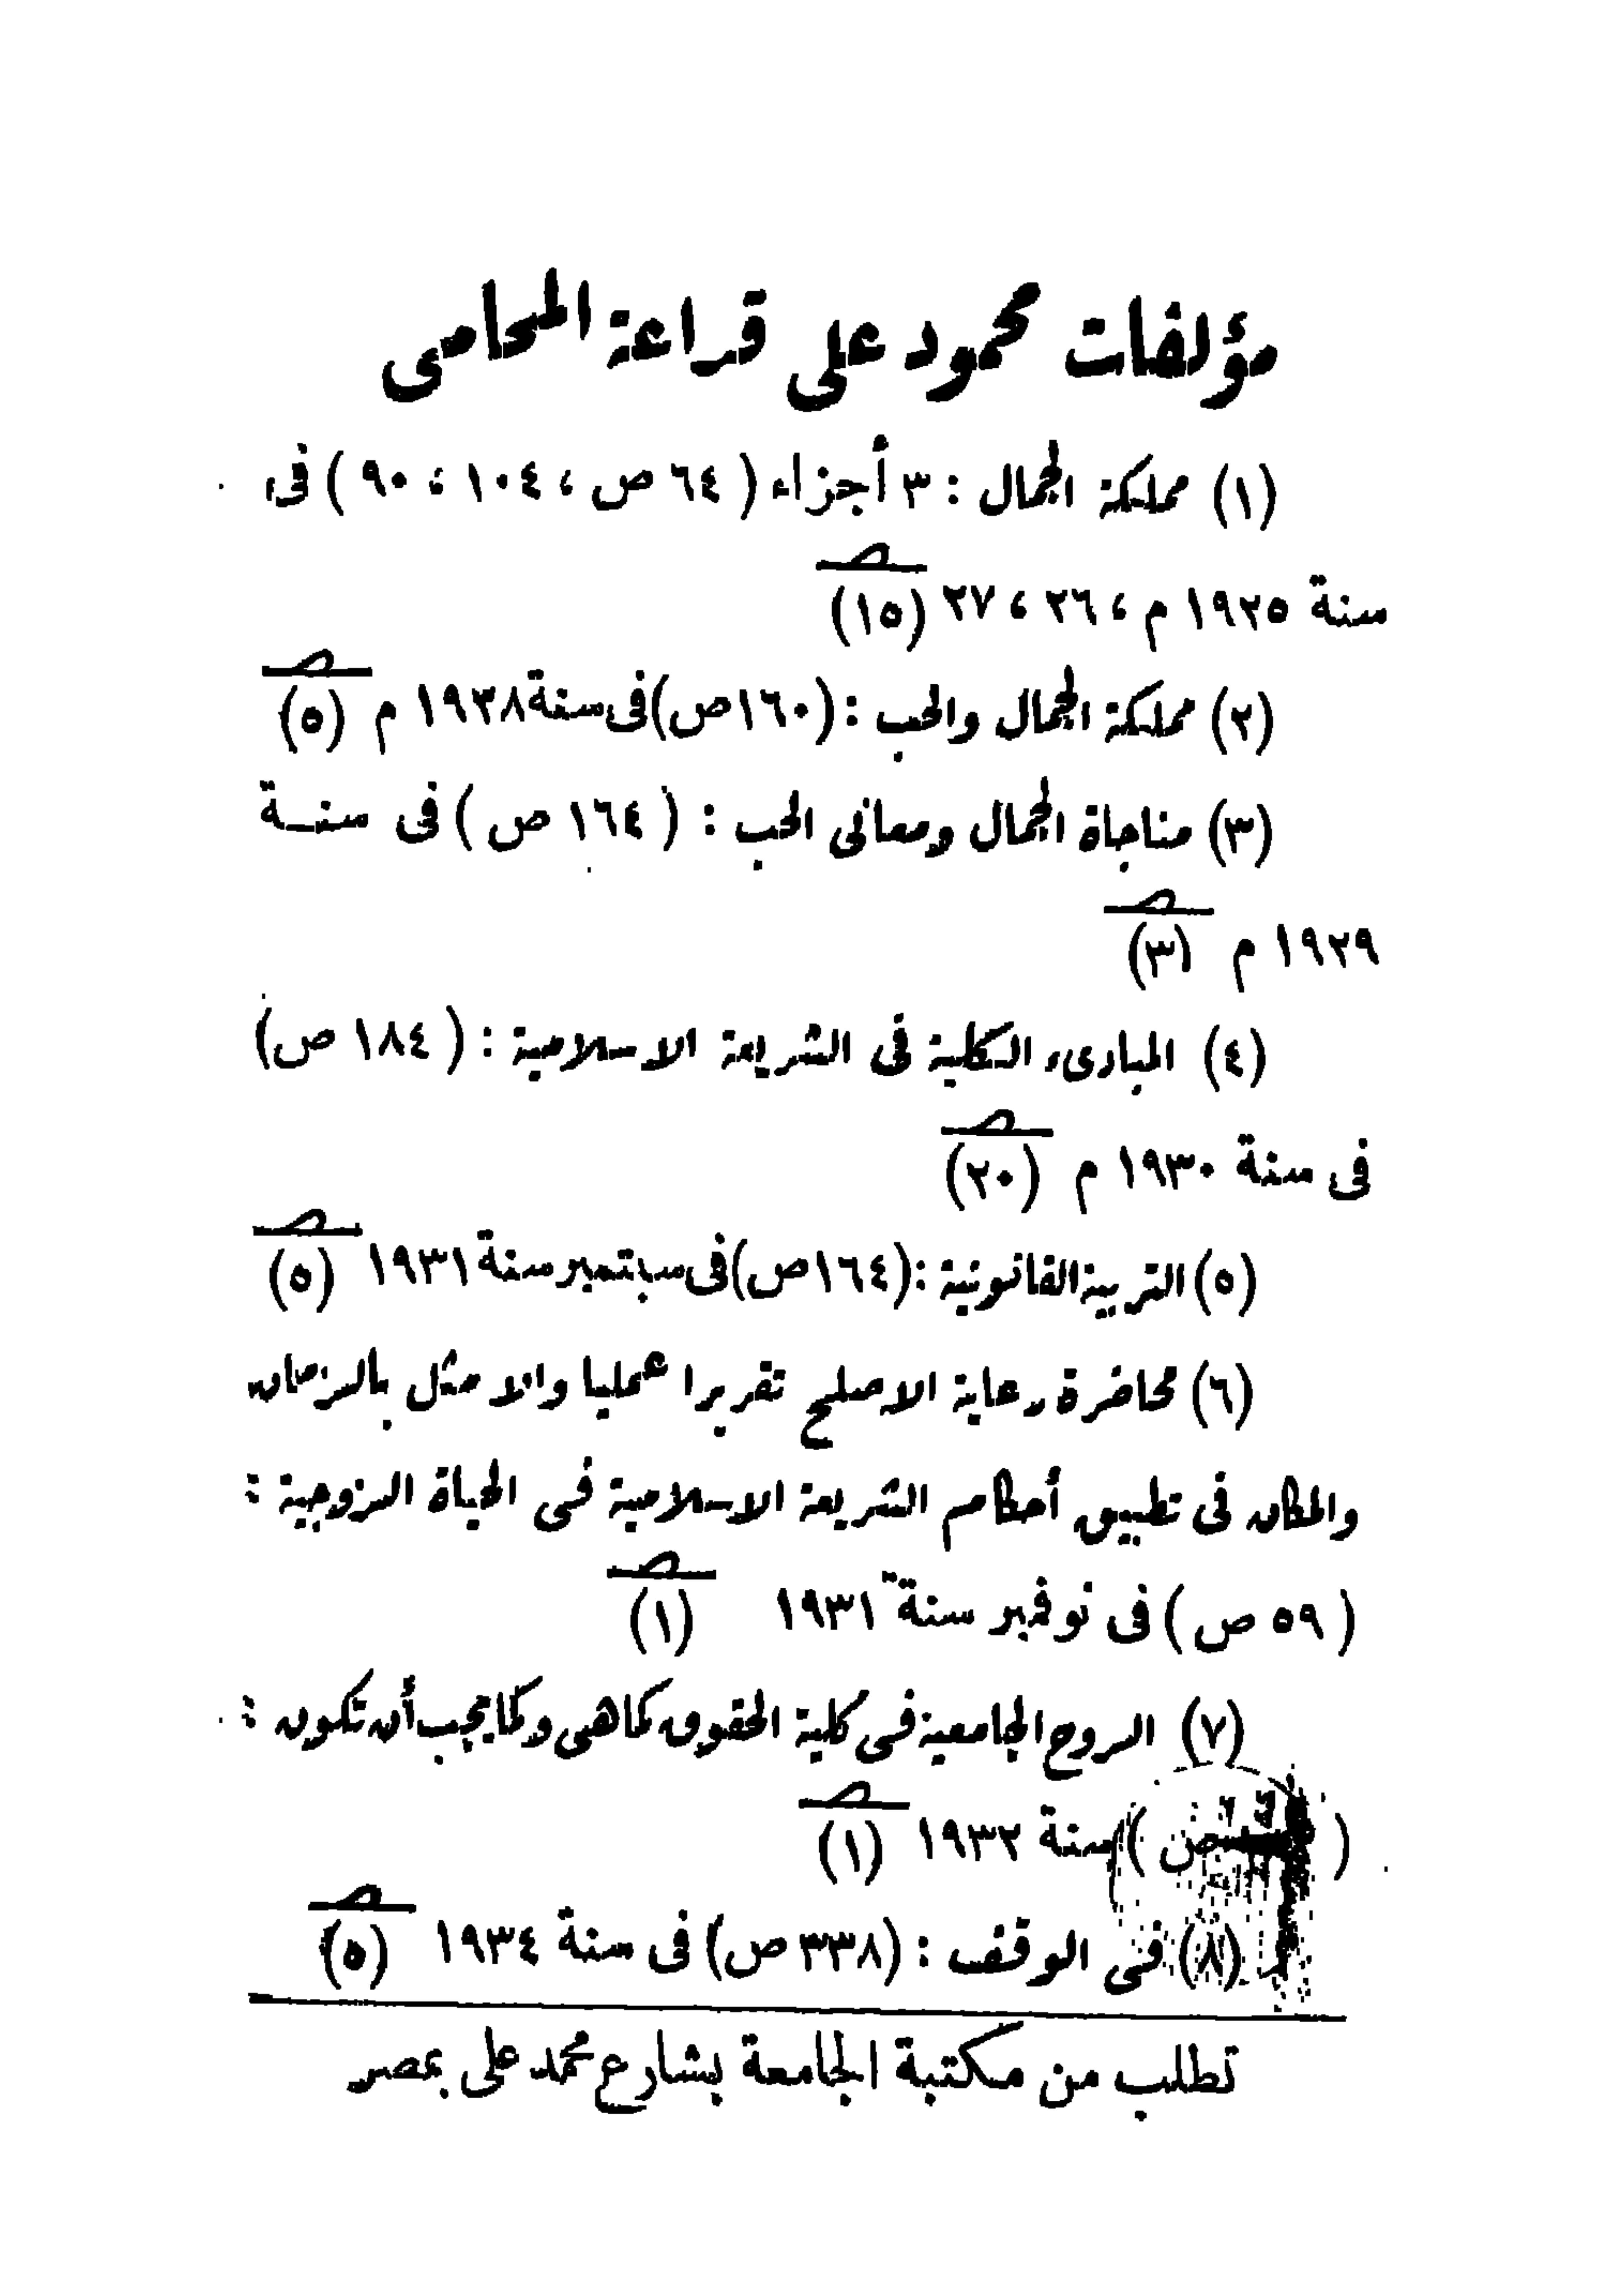 مؤلفات محمود على قراعة المحامى
(١) مملكة الجمال : ٣ أجزاء ( ٦٤ ص ، ١٠٤ ، ٩٠ ) فى
صـ
سنة ١٩٢٥ م ، ٢٦ ، ٢٧ (١٥)
صـ
(٢) مملكة الجمال والحب : (١٦٠ص) فى سنة ١٩٣٨ م (٥)
(٣) مناجاة الجمال ومعانى الحب : ( ١٦٤ ص ) فى سنـة
صـ
١٩٢٩ م (٣)
(٤) المبادىء الكلية فى الشريعة الاسلامية : ( ١٨٤ ص)
صـ
فى سنة ١٩٣٠ م (٢٠)
صـ
(٥) التربية القانونية : (١٦٤ص) فى سبتمبر سنة ١٩٣١ (٥)
(٦) محاضرة رعاية الاصلح تقريرا عمليا والامثل بالزمان
والمكان فى تطبيق أحكام الشريعة الاسلامية فى الحياة الزوجية :
صـ
( ٥٩ ص ) فى نوفمبر سنة ١٩٣١ (١)
(٧) الروح الجامعية فى كلية الحقوق كما هى وكما يجب أن تكون :
صـ
( ص ) سنة ١٩٣٢ (١)
صـ
(٨) فى الوقف : (٣٣٨ ص) فى سنة ١٩٣٤ (٥)
تطلب من مكتبة الجامعة بشارع محمد على بمصر